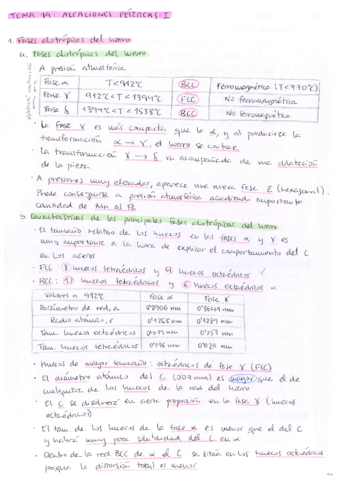 TEMA 19: ALEACIONES FÉRRICAS I
1. Fases alotrópicas del hierro
a. Fases alotrópicas del hierro
A presión atmosférica
Fase α T<912ºC BCC Ferromagnética (T<770ºC)
Fase γ 912ºC<T<1394ºC FCC No ferromagnética
Fase δ 1394ºC<T<1538ºC BCC No ferromagnética
· La fase γ es más compacta que la α, y al producirse la
transformación α → γ, el hierro se contrae
· La transformación γ → δ va acompañada de una dilatación
de la pieza
· A presiones muy elevadas, aparece una nueva fase ε (hexagonal).
Puede conseguirse a presión atmosférica añadiendo
cantidad de Mn al
b. Características de las principales fases alotrópicas del hierro
· El tamaño relativo de los huecos en las fases α y γ es
muy importante a la hora de explicar el comportamiento del C
en los aceros
· FCC: 8 huecos tetraédricos y 4 huecos octaédricos
· BCC: 12 huecos tetraédricos y 6 huecos octaédricos
Valores a 912ºC Fase α Fase γ
Parámetro de red, a nm nm
Radio atómico, r nm nm
Tam. huecos octaédricos nm nm
Tam. huecos tetraédricos nm nm
· Huecos de mayor tamaño: octaédricos de fase γ (FCC)
· El diámetro atómico del C nm) es mayor que el de
cualquiera de los huecos de la red del hierro
· El C se disolverá en cierta proporción en la fase γ (huecos
octaédricos)
· El tam. de los huecos de la fase α es menor que el del C
y habrá muy poca solubilidad del C en α
· Dentro de la red BCC de α el C se sitúa en los huecos octaédricos
porque la distorsión total es menor